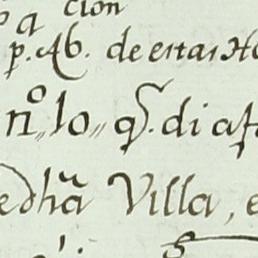 cion
p. Ab. de estas Ho
nº lo q.e di af
edhā Villa, e